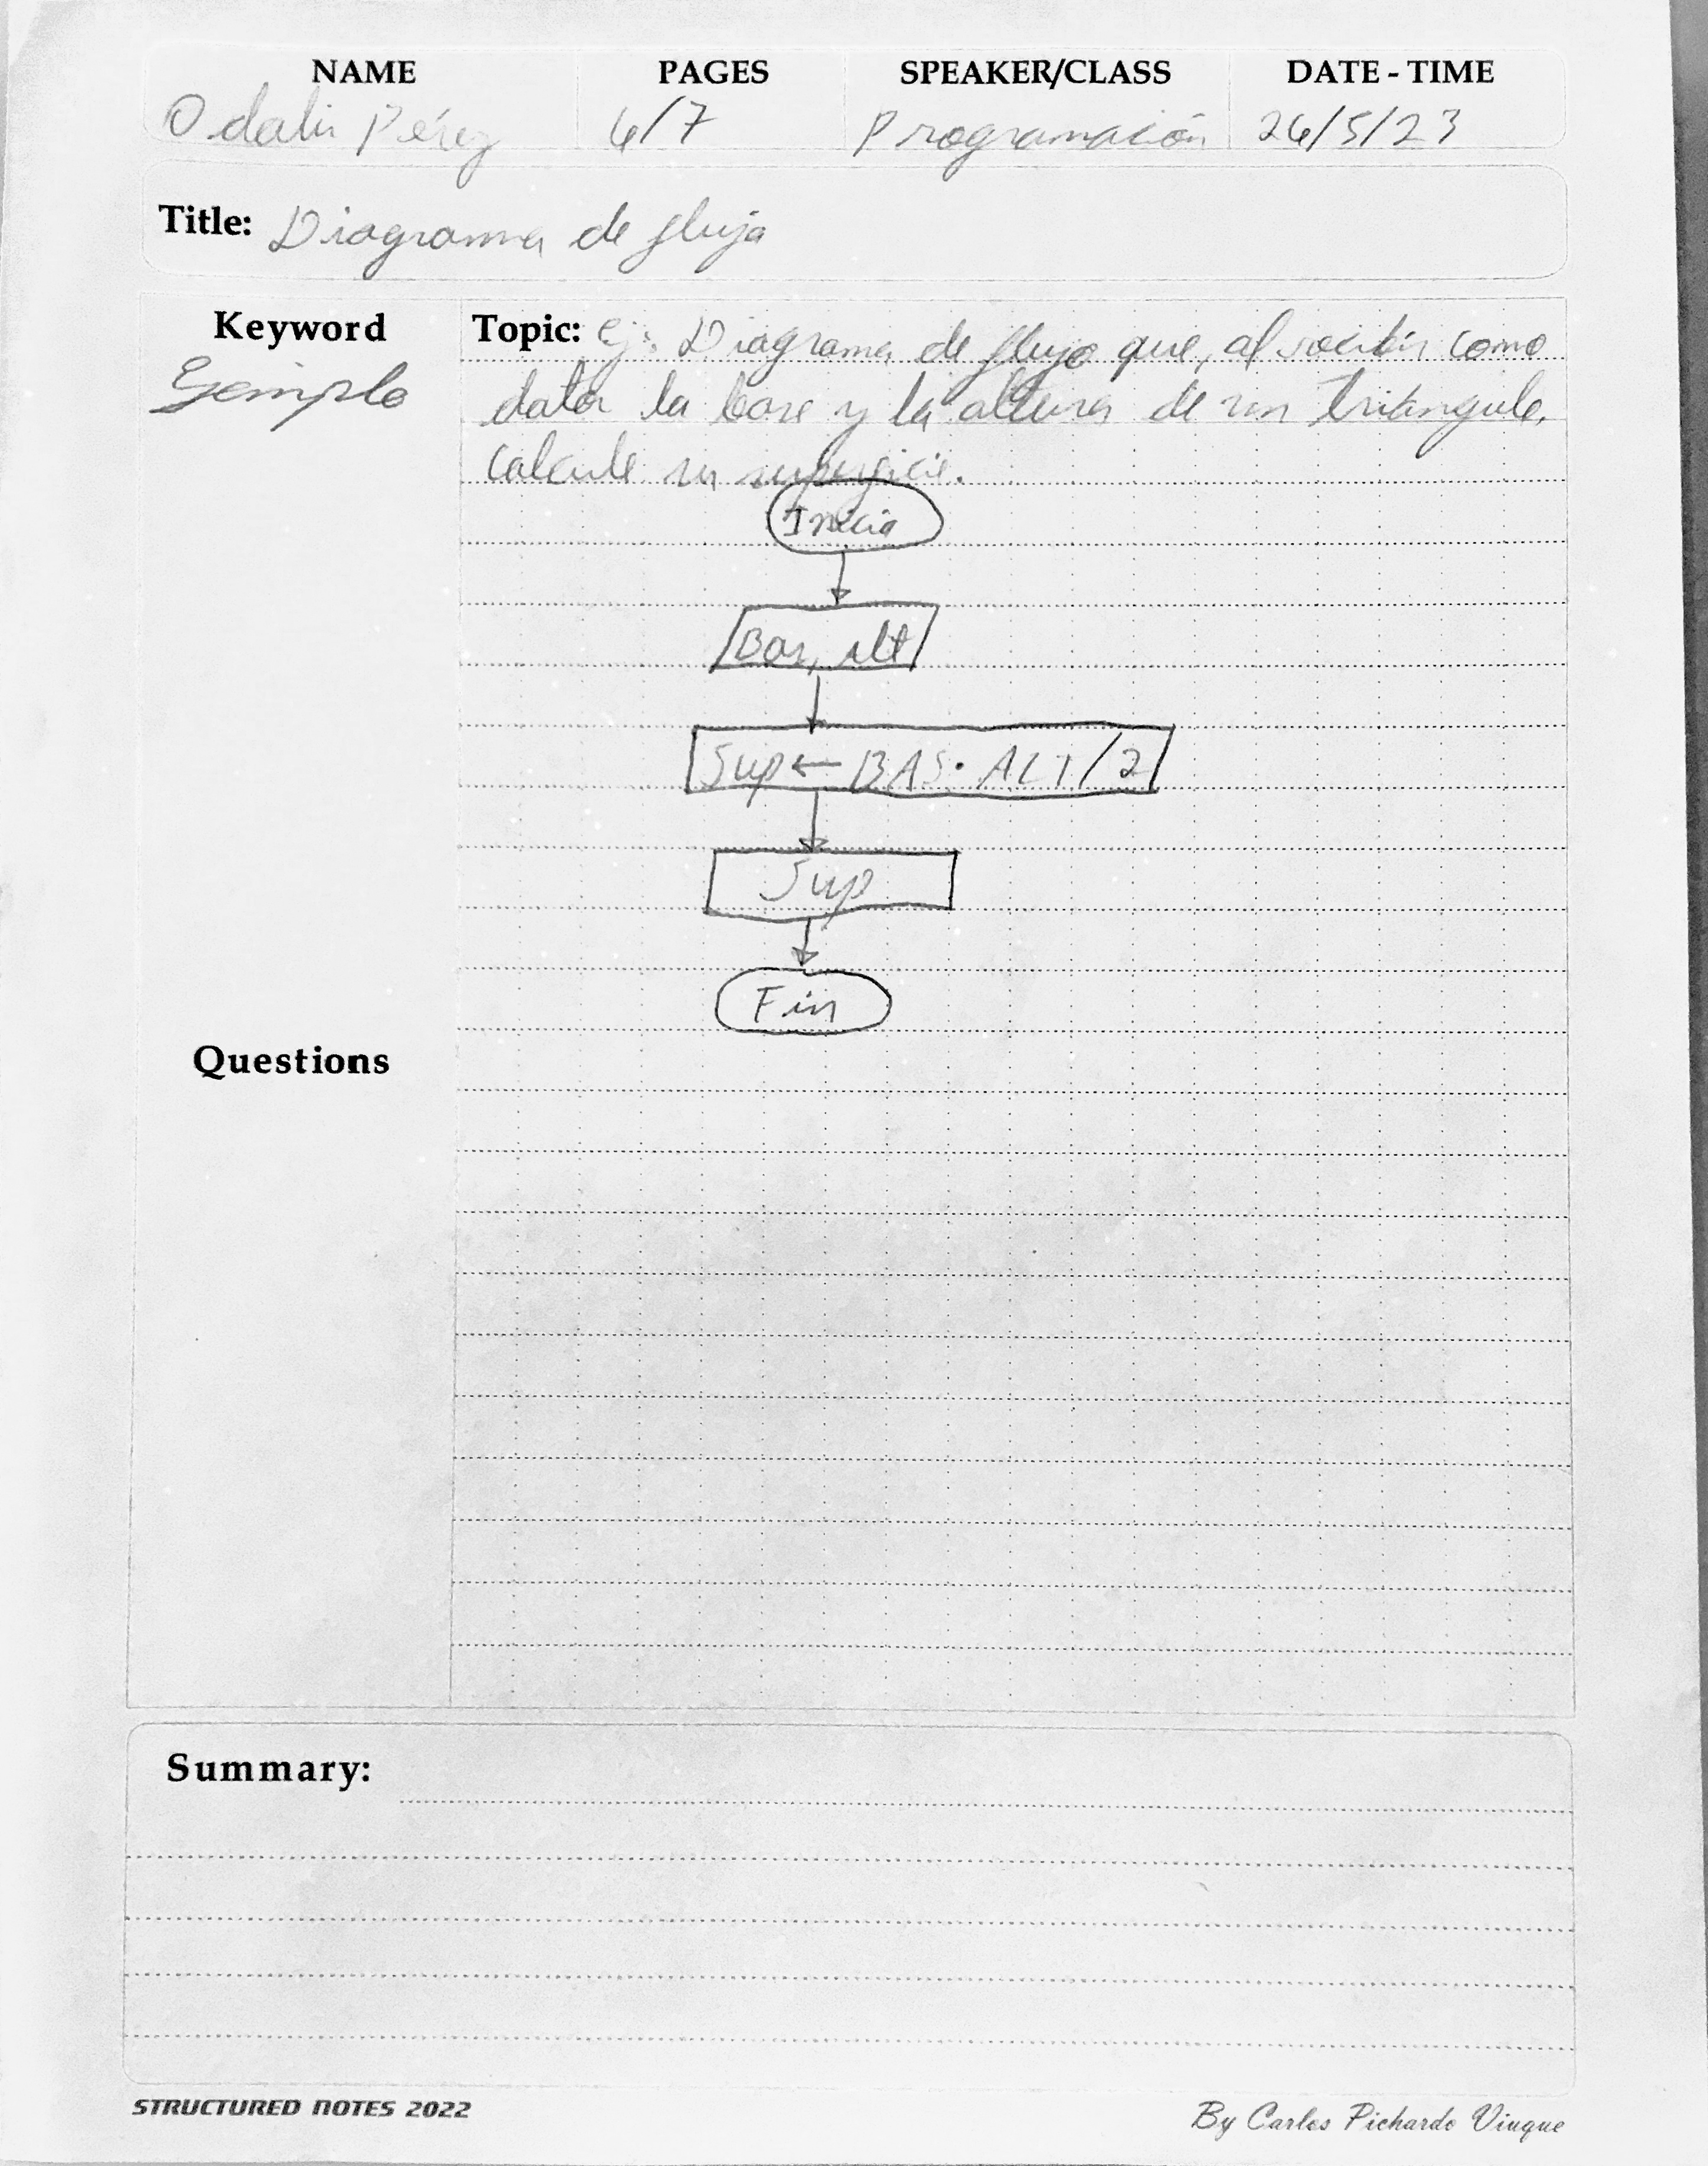 NAME PAGES SPEAKER/CLASS DATE - TIME
Odalis Pérez 6/7 Programación 26/5/23
Title: Diagrama de flujo
Keyword
Ejemplo
Topic: Ej: Diagrama de flujo que, al recibir como
datos la base y la altura de un triángulo,
calcule su superficie.
Inicio
Bas, Alt
Sup ← BAS · ALT / 2
Sup
Fin
Questions
Summary:
STRUCTURED NOTES 2022
By Carlos Pichardo Viuque